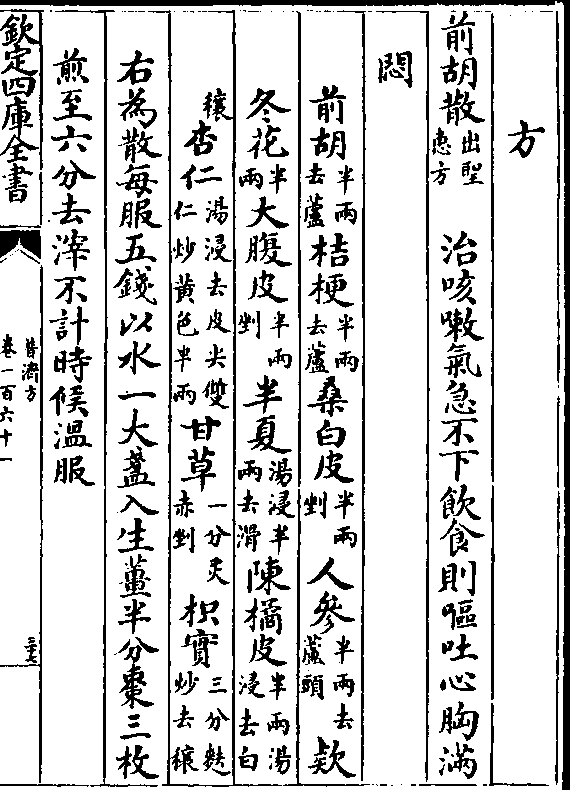 方
前胡散出聖惠方 治咳嗽氣急不下飲食則嘔吐心胸滿
悶
前胡半兩去蘆 桔梗半兩去蘆 桑白皮半兩剉 人參半兩去蘆頭 欵
冬花半兩 大腹皮半兩剉 半夏湯浸半兩去滑 陳橘皮半兩湯浸去白
穰 杏仁湯浸去皮尖雙仁炒黄色半兩 甘草一分炙赤剉 枳實三分麩炒去穰
右為散每服五錢以水一大盞入生薑半分棗三枚
煎至六分去滓不計時候溫服
欽定四庫全書
普濟方
卷一百六十一
三十七